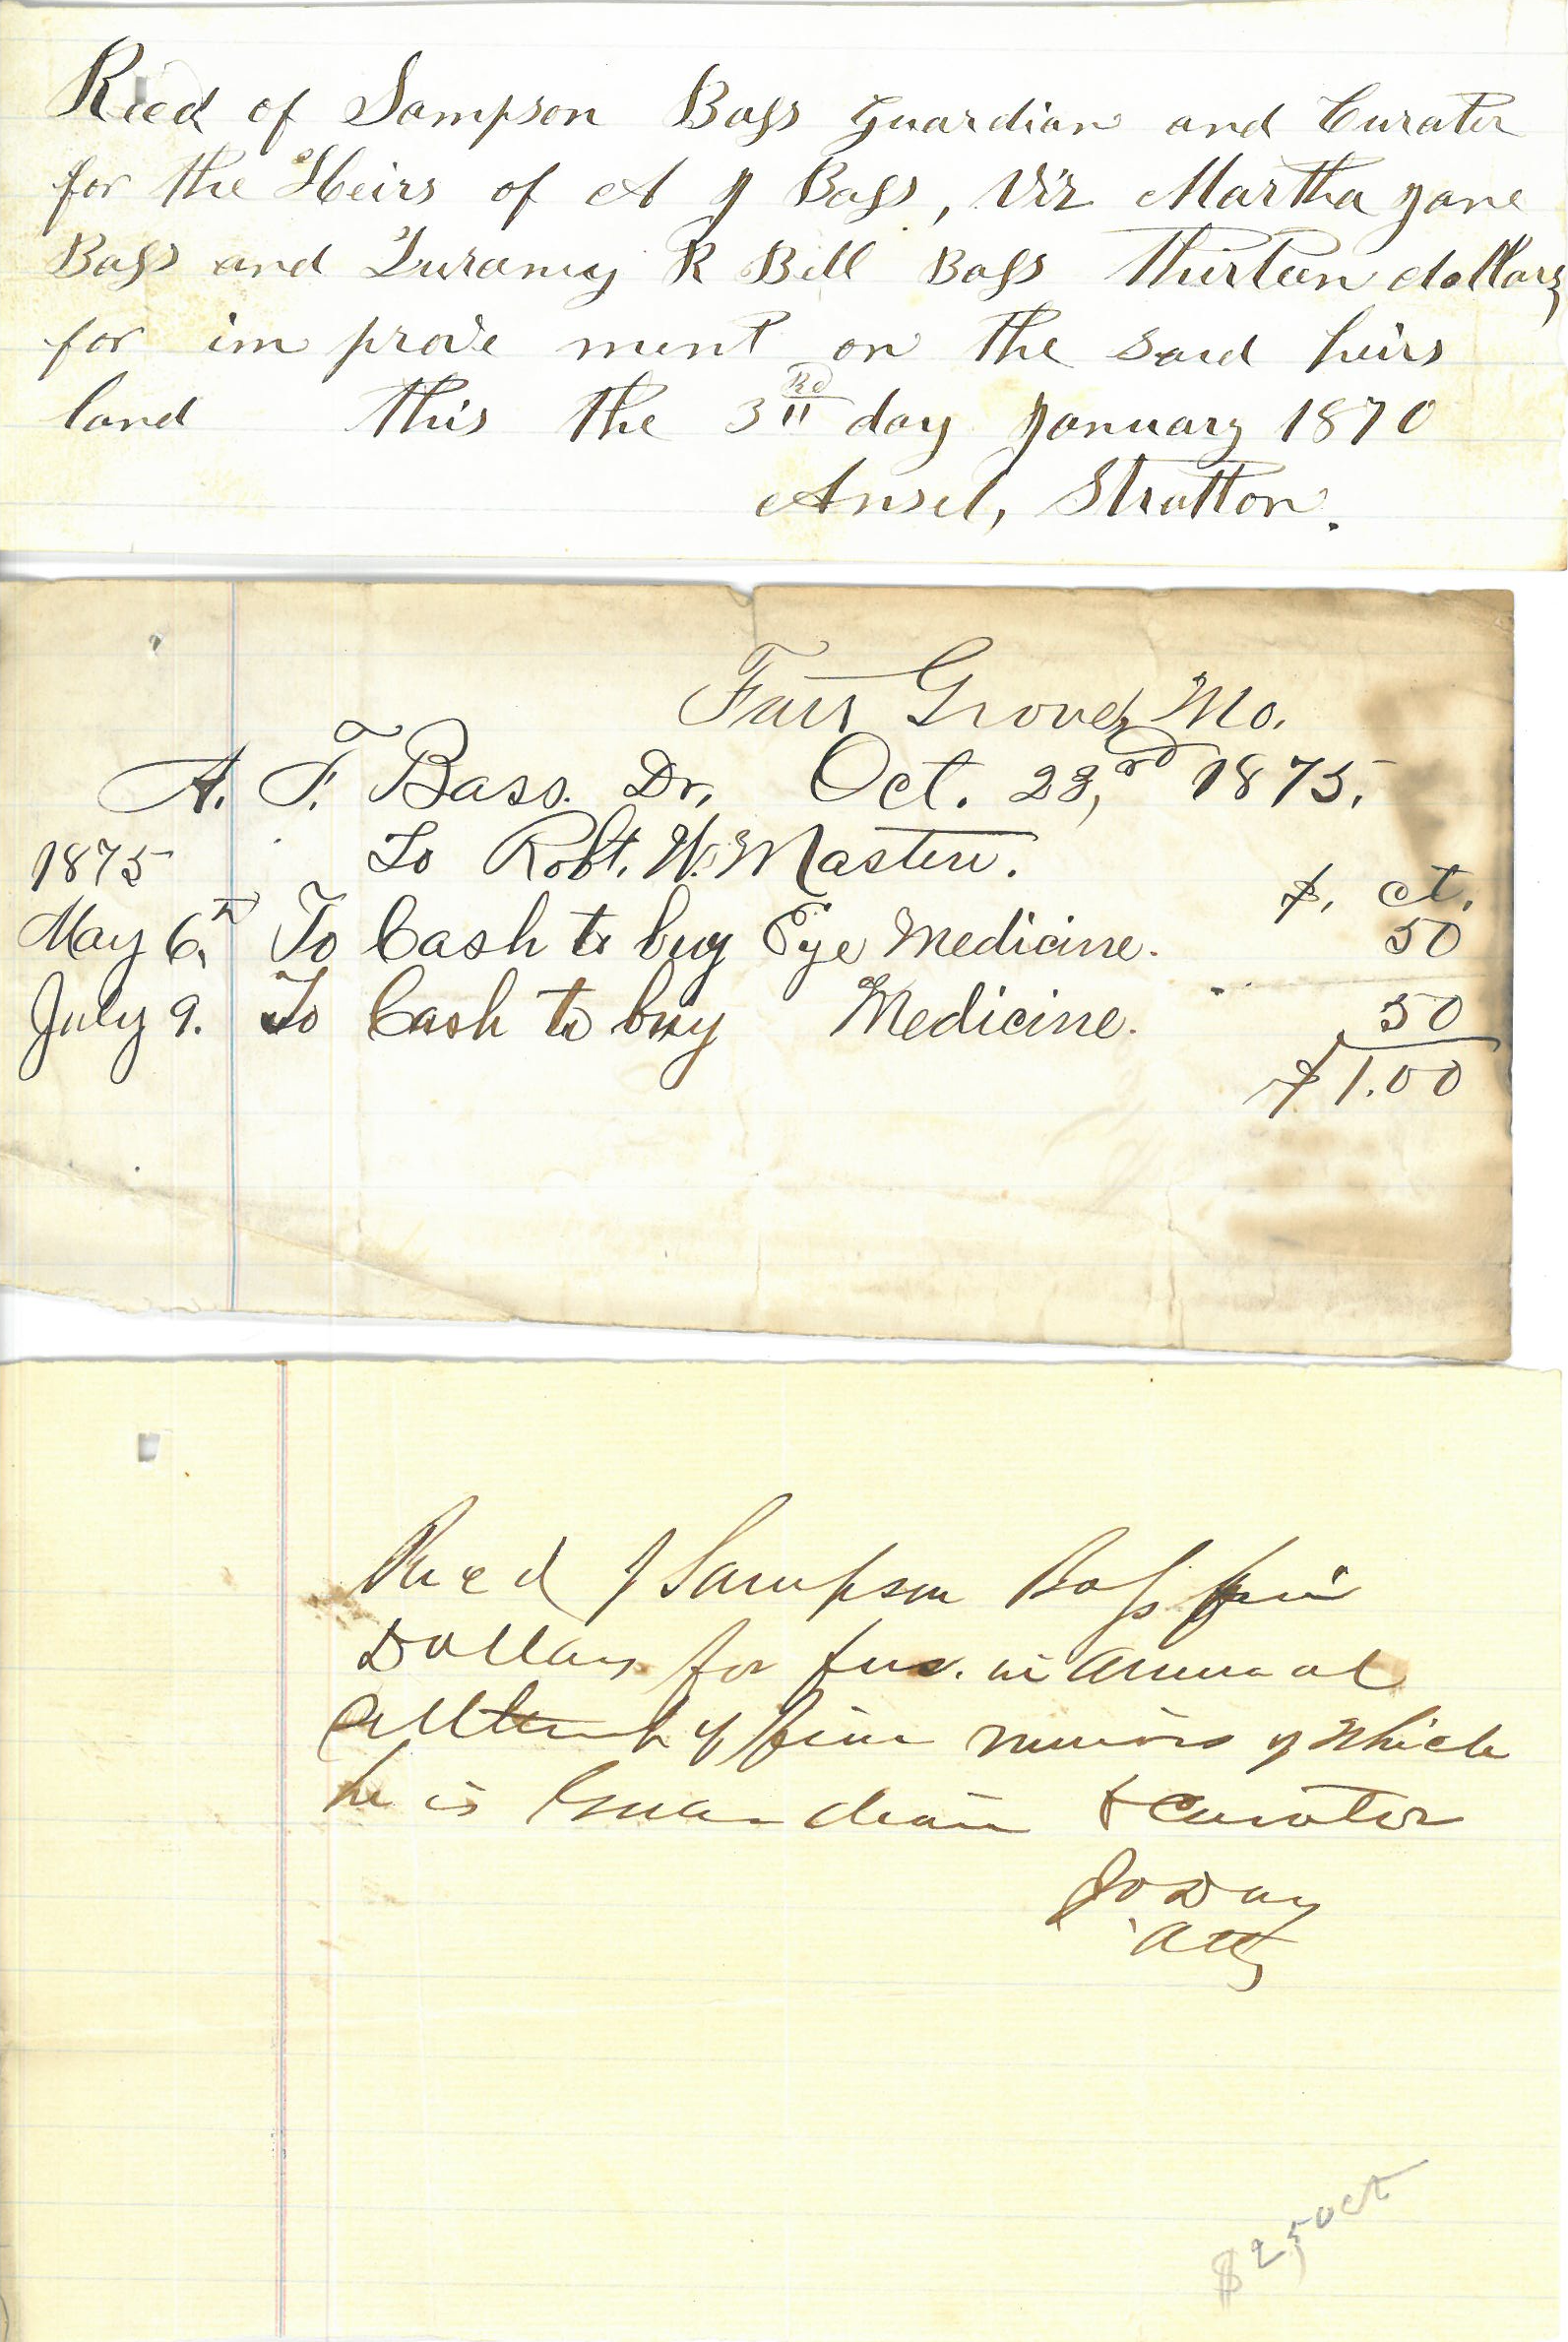 Recd of Sampson Bass Guardian and Curator
for the Heirs of A J Bass, Viz Martha Jane
Bass and Luraney R Bell Bass thirteen dollars
for im prove ment on the said heirs
land this the 3rd day January 1870
Ansel, Stratton.
Fair Grove, Mo.
A. T. Bass. Dr, Oct. 23,rd 1875.
1875 To Robt. W. Masten.
$. ct.
May 6.th To Cash to buy Eye Medicine. 50
July 9. To Cash to buy Medicine. 50
$1.00
Recd of Sampson Bass five
Dollars for in annual
of five minors of which
he is Guardian & Curator
Jo Day
Atty
$2,50ct